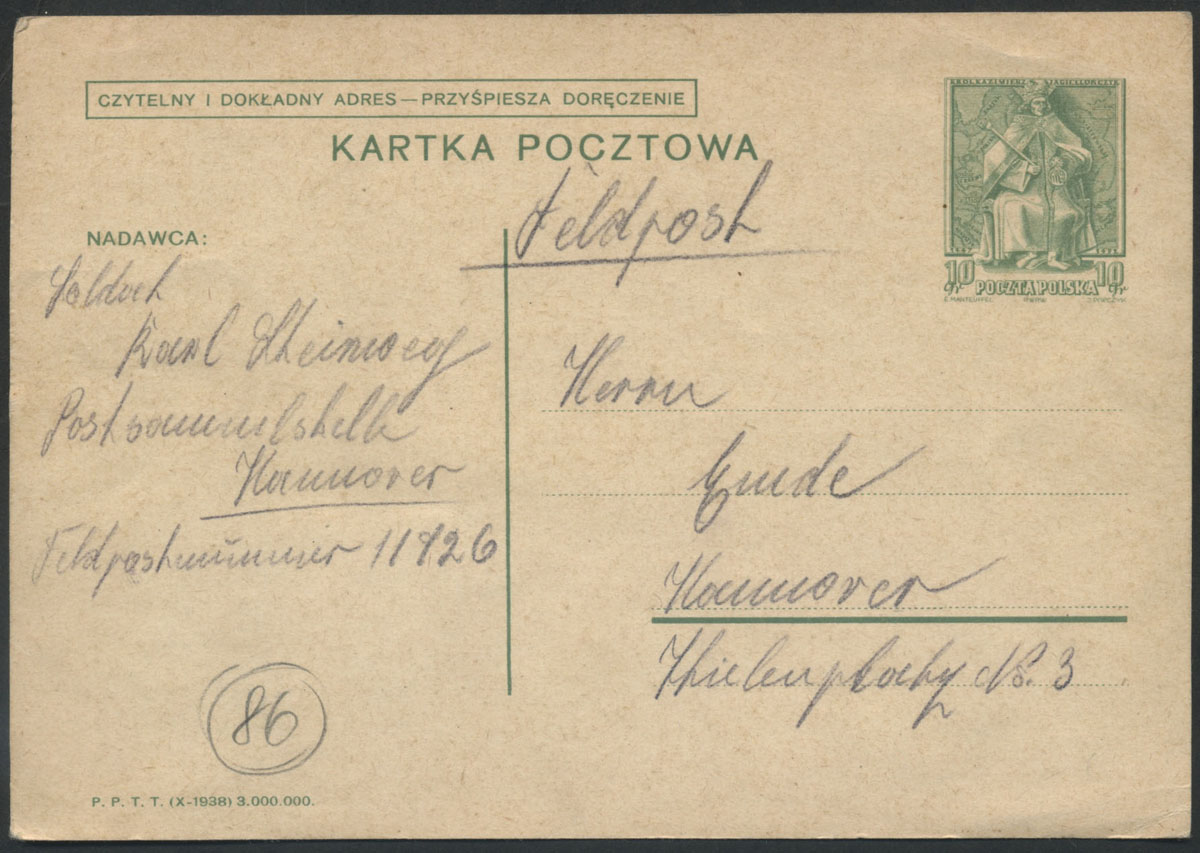 CZYTELNY I DOKŁADNY ADRES — PRZYŚPIESZA DORĘCZENIE
KARTKA POCZTOWA
Feldpost
NADAWCA:
Soldat
Karl Steinweg
Postsammelstelle
Hannover
Feldpostnummer 11826
KRÓL KAZIMIERZ JAGIELLOŃCZYK
10 gr POCZTA POLSKA 10 gr
Herrn
Emde
Hannover
Thielenplatz No. 3
86
P. P. T. T. (X-1938) 3.000.000.